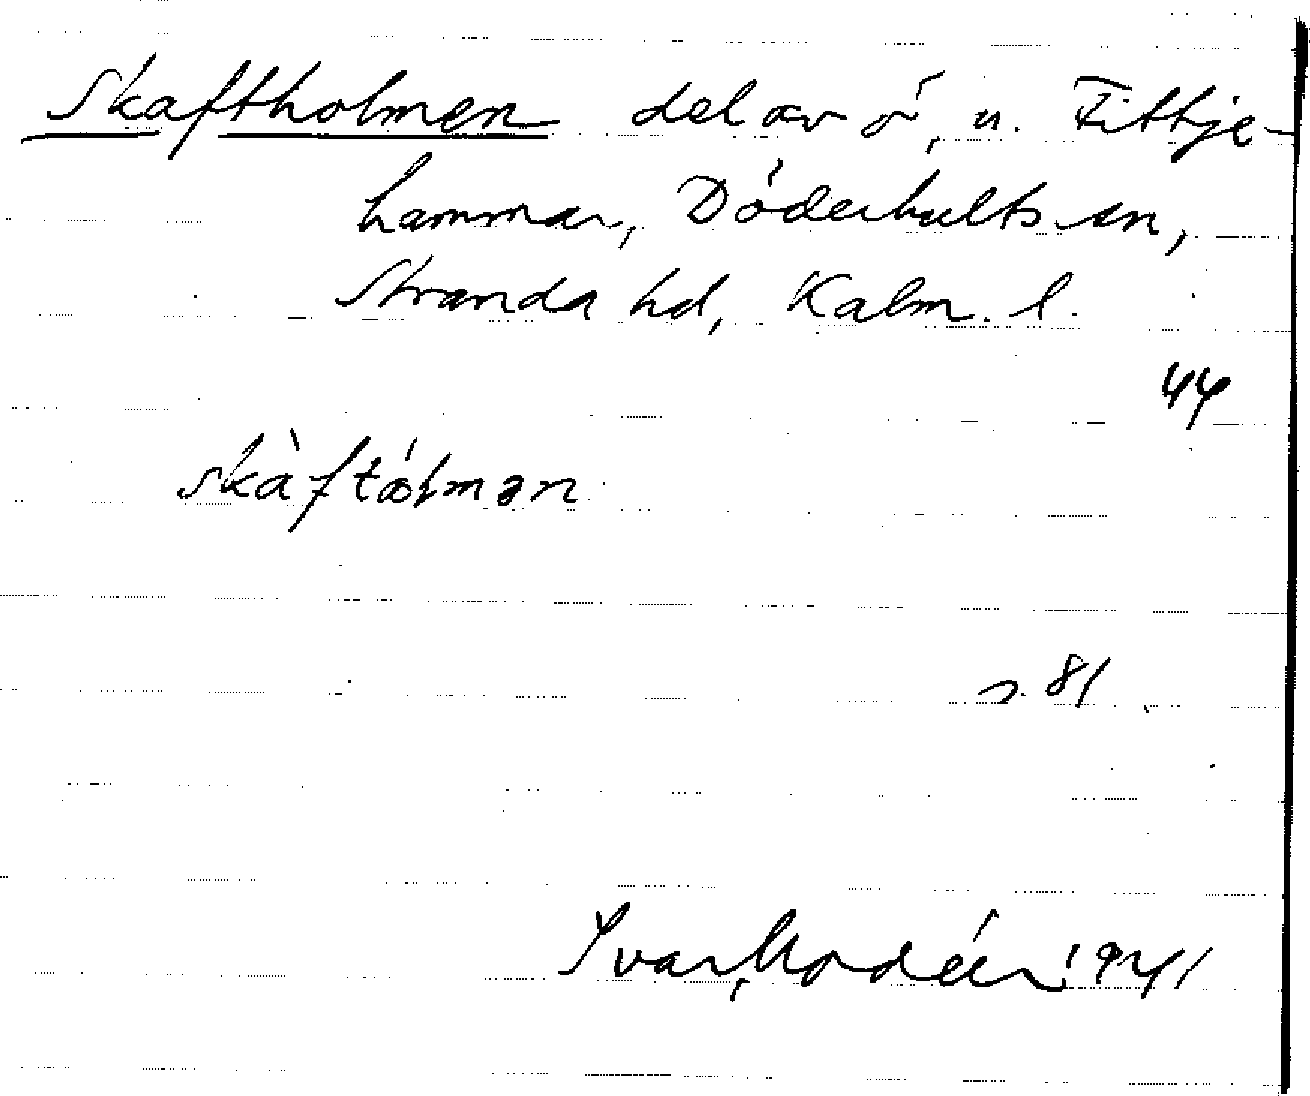 Skaftholmen del av ö, u. Fittje-
hammar, Döderhults sn,
Stranda hd, Kalm. l.
44
skàftól̥mən
s. 81
Ivar Modéer 1941